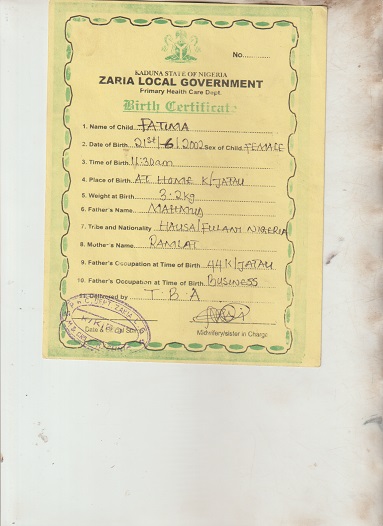 No..........
KADUNA STATE OF NIGERIA
ZARIA LOCAL GOVERNMENT
Primary Health Care Dept.
Birth Certificate
1. Name of Child FATIMA
2. Date of Birth 21st/6/2002 Sex of Child FEMALE
3. Time of Birth 11:30am
4. Place of Birth AT HOME K/JATAU
5. Weight at Birth 3.2kg
6. Father's Name
7. Tribe and Nationality HAUSA/FULANI NIGERIA
8. Muther's Name RAMLAT
9. Father's Occupation at Time of Birth 44 K/JATAU
10. Father's Occupation at Time of Birth BUSINESS
11. Delivered by T.B.A
Date &
Midwifery/sister in Charge